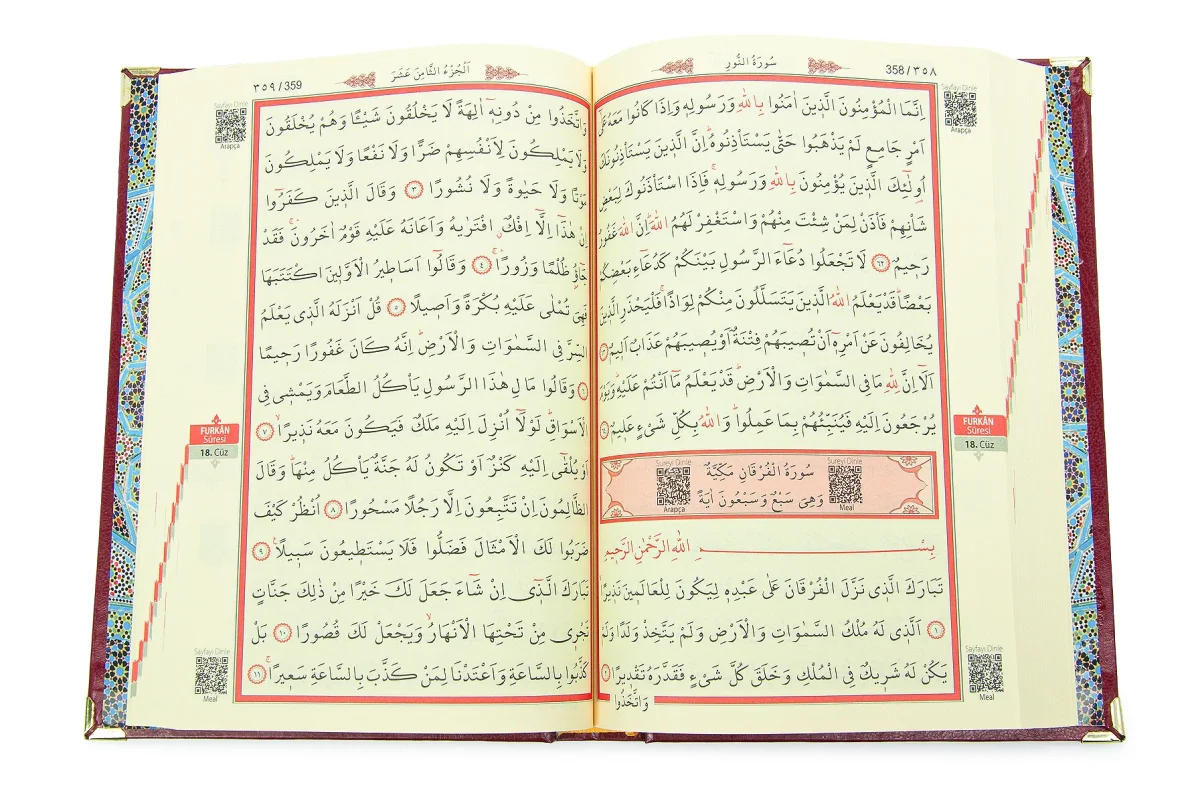 358/٣٥٨
سُورَةُ النُّورِ
Sayfayı Dinle
Arapça
اِنَّمَا الْمُؤْمِنُونَ الَّذٖينَ اٰمَنُوا بِاللّٰهِ وَرَسُولِهٖ وَاِذَا كَانُوا مَعَهُ عَلٰٓى
اَمْرٍ جَامِعٍ لَمْ يَذْهَبُوا حَتّٰى يَسْتَأْذِنُوهُؕ اِنَّ الَّذٖينَ يَسْتَأْذِنُونَكَ
اُو۬لٰٓئِكَ الَّذٖينَ يُؤْمِنُونَ بِاللّٰهِ وَرَسُولِهٖۚ فَاِذَا اسْتَأْذَنُوكَ لِبَعْضِ
شَأْنِهِمْ فَأْذَنْ لِمَنْ شِئْتَ مِنْهُمْ وَاسْتَغْفِرْ لَهُمُ اللّٰهَؕ اِنَّ اللّٰهَ غَفُورٌ
رَحٖيمٌ ﴿٦٢﴾ لَا تَجْعَلُوا دُعَٓاءَ الرَّسُولِ بَيْنَكُمْ كَدُعَٓاءِ بَعْضِكُمْ
بَعْضًاؕ قَدْ يَعْلَمُ اللّٰهُ الَّذٖينَ يَتَسَلَّلُونَ مِنْكُمْ لِوَاذًاۚ فَلْيَحْذَرِ الَّذٖينَ
يُخَالِفُونَ عَنْ اَمْرِهٖٓ اَنْ تُصٖيبَهُمْ فِتْنَةٌ اَوْ يُصٖيبَهُمْ عَذَابٌ اَلٖيمٌ ﴿٦٣﴾
اَلَٓا اِنَّ لِلّٰهِ مَا فِي السَّمٰوَاتِ وَالْاَرْضِؕ قَدْ يَعْلَمُ مَٓا اَنْتُمْ عَلَيْهِؕ وَيَوْمَ
يُرْجَعُونَ اِلَيْهِ فَيُنَبِّئُهُمْ بِمَا عَمِلُواؕ وَاللّٰهُ بِكُلِّ شَيْءٍ عَلٖيمٌ ﴿٦٤﴾
FURKÂN
Sûresi
18. Cüz
Sureyi Dinle
Arapça
سُورَةُ الْفُرْقَانِ مَكِّيَّةٌ
وَهِيَ سَبْعٌ وَسَبْعُونَ اٰيَةً
Sureyi Dinle
Meal
بِسْمِ اللّٰهِ الرَّحْمٰنِ الرَّحٖيمِ
تَبَارَكَ الَّذٖي نَزَّلَ الْفُرْقَانَ عَلٰى عَبْدِهٖ لِيَكُونَ لِلْعَالَمٖينَ نَذٖيرًاۙ
﴿١﴾ اَلَّذٖي لَهُ مُلْكُ السَّمٰوَاتِ وَالْاَرْضِ وَلَمْ يَتَّخِذْ وَلَدًا وَلَمْ
يَكُنْ لَهُ شَرٖيكٌ فِي الْمُلْكِ وَخَلَقَ كُلَّ شَيْءٍ فَقَدَّرَهُ تَقْدٖيرًا ﴿٢﴾
وَاتَّخَذُوا
Sayfayı Dinle
Meal
اَلْجُزْءُ الثَّامِنَ عَشَرَ
٣٥٩/359
Sayfayı Dinle
Arapça
وَاتَّخَذُوا مِنْ دُونِهٖٓ اٰلِهَةً لَا يَخْلُقُونَ شَيْـًٔا وَهُمْ يُخْلَقُونَ
وَلَا يَمْلِكُونَ لِاَنْفُسِهِمْ ضَرًّا وَلَا نَفْعًا وَلَا يَمْلِكُونَ
مَوْتًا وَلَا حَيٰوةً وَلَا نُشُورًا ﴿٣﴾ وَقَالَ الَّذٖينَ كَفَرُٓوا
اِنْ هٰذَٓا اِلَّٓا اِفْكٌۨ افْتَرٰيهُ وَاَعَانَهُ عَلَيْهِ قَوْمٌ اٰخَرُونَۚۛ فَقَدْ
جَٓاؤُ۫ ظُلْمًا وَزُورًاۚۛ ﴿٤﴾ وَقَالُٓوا اَسَاطٖيرُ الْاَوَّلٖينَ اكْتَتَبَهَا
فَهِيَ تُمْلٰى عَلَيْهِ بُكْرَةً وَاَصٖيلًا ﴿٥﴾ قُلْ اَنْزَلَهُ الَّذٖي يَعْلَمُ
السِّرَّ فِي السَّمٰوَاتِ وَالْاَرْضِؕ اِنَّهُ كَانَ غَفُورًا رَحٖيمًا
﴿٦﴾ وَقَالُوا مَالِ هٰذَا الرَّسُولِ يَأْكُلُ الطَّعَامَ وَيَمْشٖي فِي
الْاَسْوَاقِؕ لَوْلَٓا اُنْزِلَ اِلَيْهِ مَلَكٌ فَيَكُونَ مَعَهُ نَذٖيرًاۙ ﴿٧﴾
اَوْ يُلْقٰٓى اِلَيْهِ كَنْزٌ اَوْ تَكُونُ لَهُ جَنَّةٌ يَأْكُلُ مِنْهَاؕ وَقَالَ
الظَّالِمُونَ اِنْ تَتَّبِعُونَ اِلَّا رَجُلًا مَسْحُورًا ﴿٨﴾ اُنْظُرْ كَيْفَ
ضَرَبُوا لَكَ الْاَمْثَالَ فَضَلُّوا فَلَا يَسْتَطٖيعُونَ سَبٖيلًاۚ ﴿٩﴾
تَبَارَكَ الَّذٖٓي اِنْ شَٓاءَ جَعَلَ لَكَ خَيْرًا مِنْ ذٰلِكَ جَنَّاتٍ
تَجْرٖي مِنْ تَحْتِهَا الْاَنْهَارُۙ وَيَجْعَلْ لَكَ قُصُورًا ﴿١٠﴾ بَلْ
كَذَّبُوا بِالسَّاعَةِ وَاَعْتَدْنَا لِمَنْ كَذَّبَ بِالسَّاعَةِ سَعٖيرًاۚ ﴿١١﴾
FURKÂN
Sûresi
18. Cüz
Sayfayı Dinle
Meal